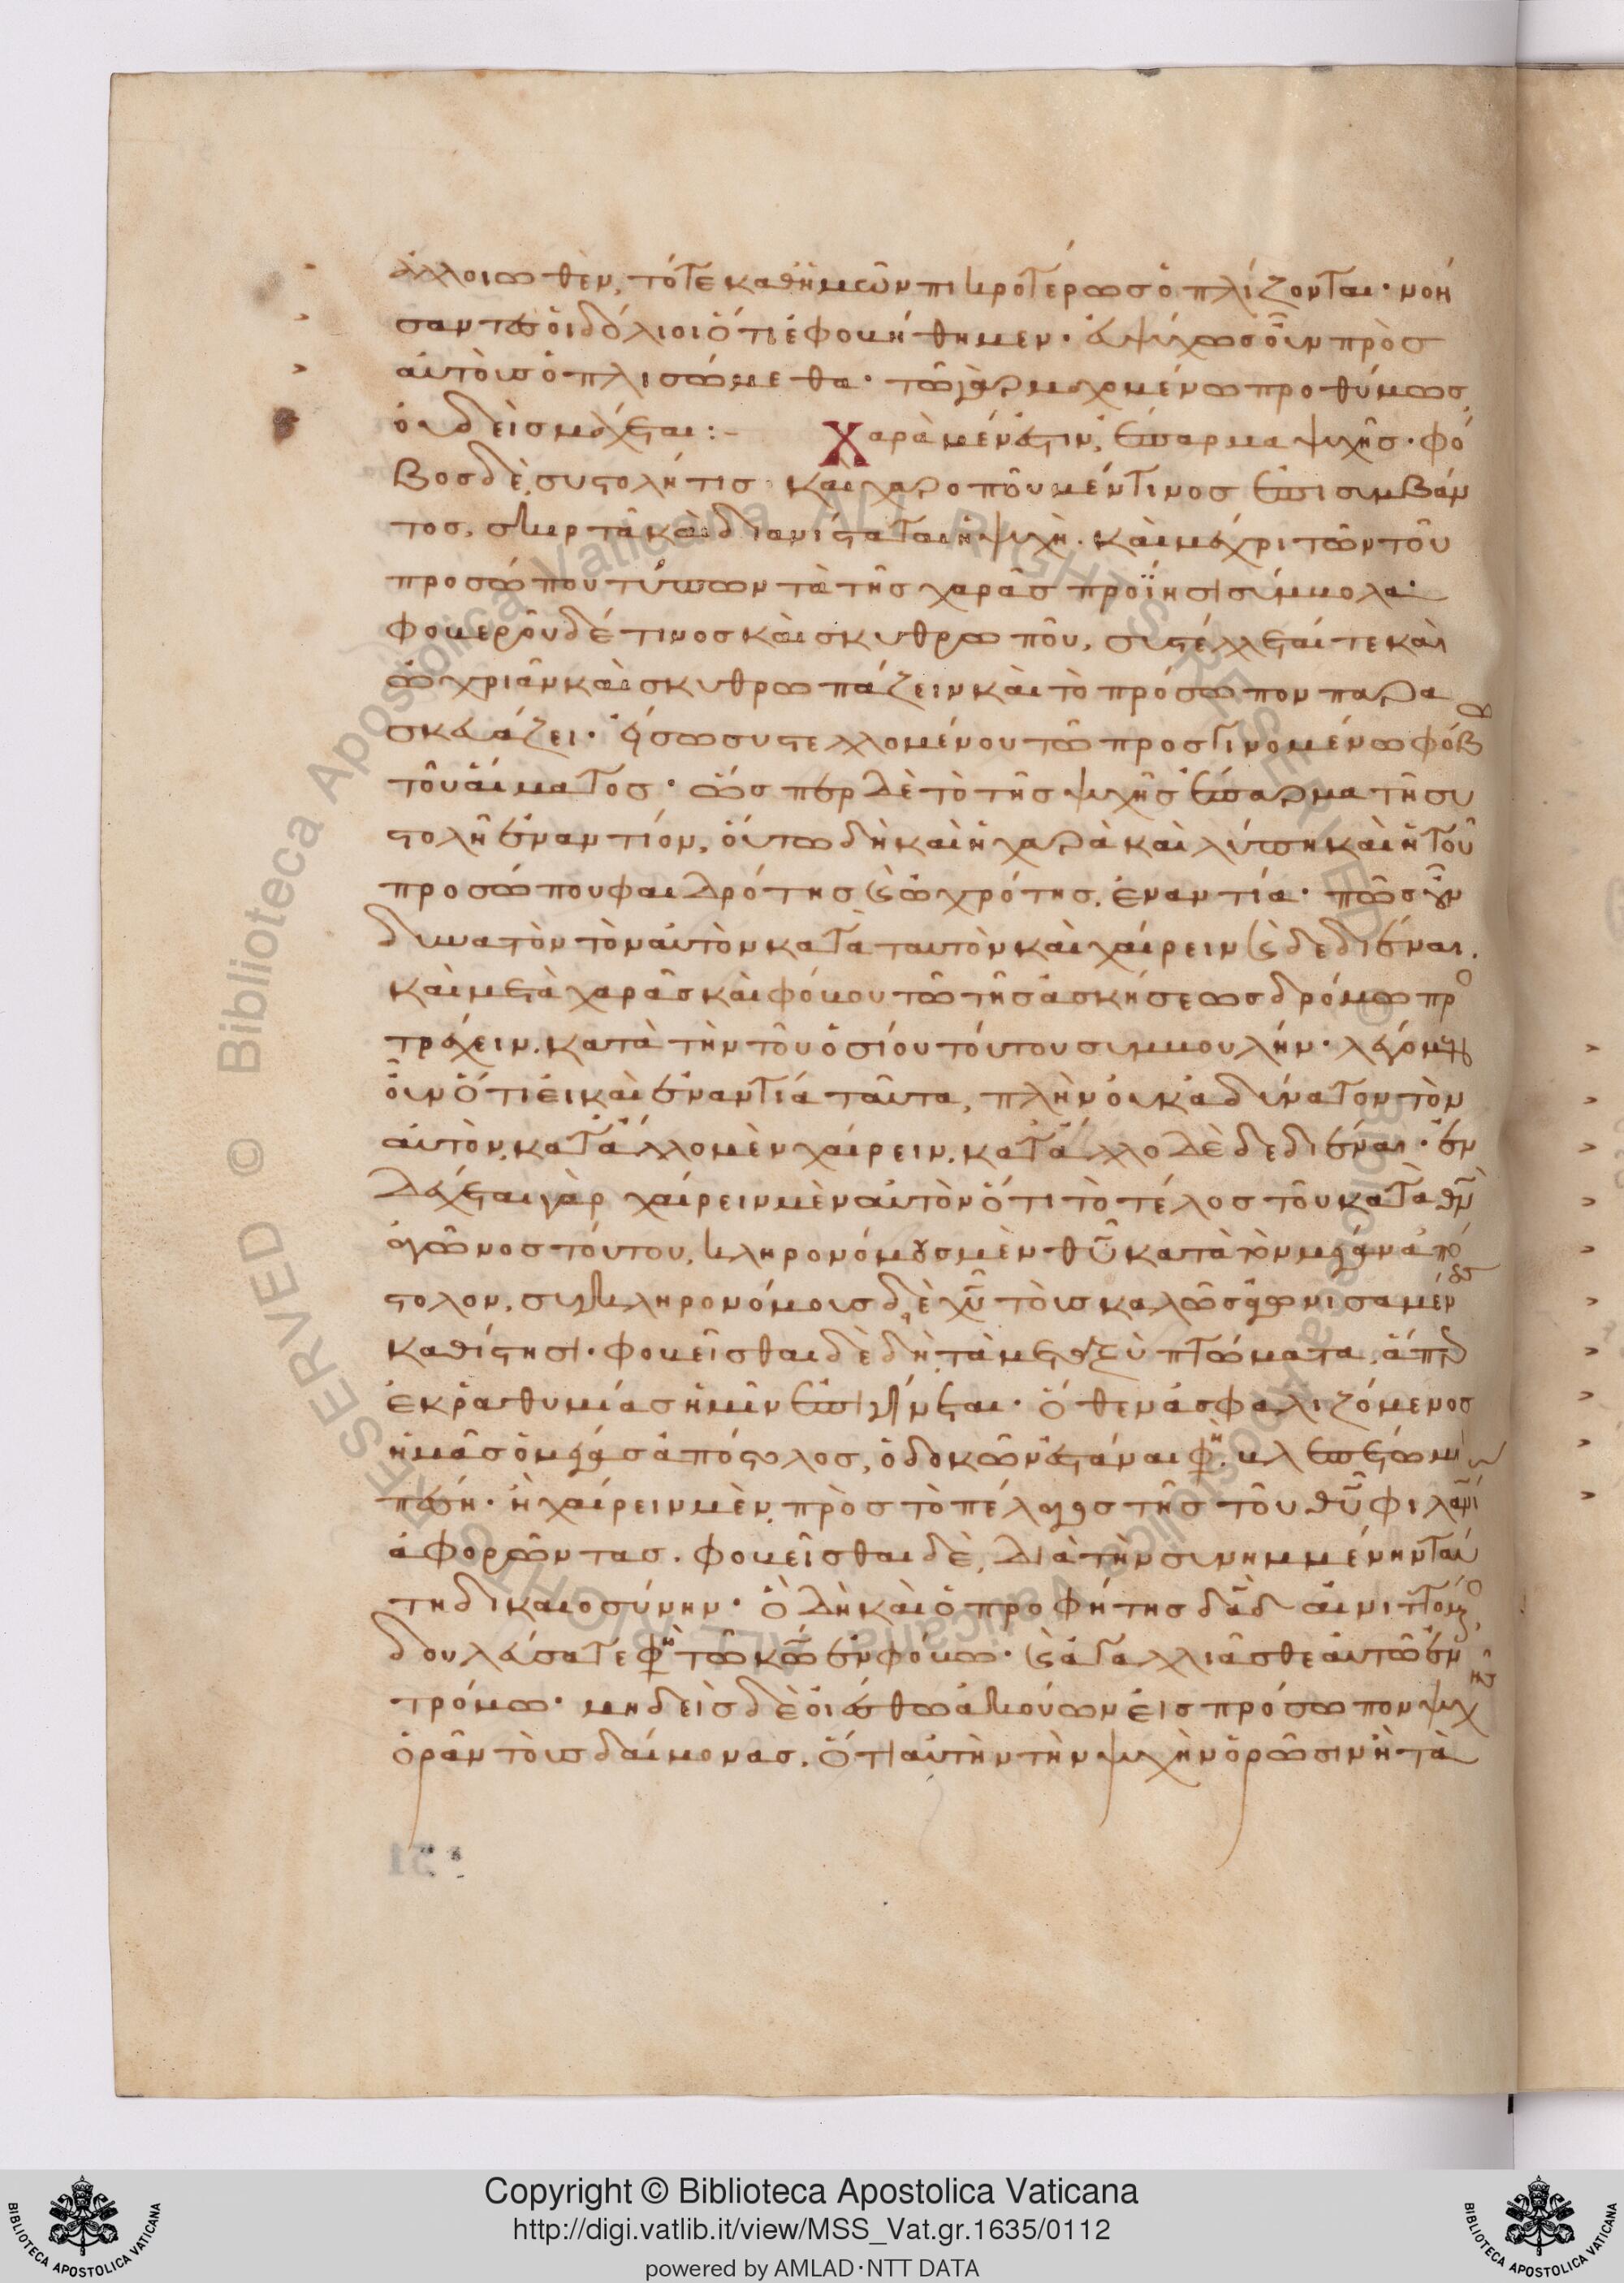 ἀλλοιωθὲν, τότε καθ' ἡμῶν πικροτέρως ὁπλίζονται· νοή
σαντες οἱ δόλιοι ὅτι ἐφοβήθημεν· εὐψύχως οὖν πρὸς
αὐτοὺς ὁπλισώμεθα· τῶ γὰρ μαχομένω προθύμως,
οὐδεὶς μάχεται:– Χαρὰ μέν ἐστιν, ἔπαρμα ψυχῆς· φό
βος δὲ, συστολή τις· καὶ χαροποῦ μέν τινος ἐπισυμβάν
τος, σκιρτᾶ καὶ διανίσταται ἡ ψυχὴ. καὶ μέχρι τῶν τοῦ
προσώπου τύπων τὰ τῆς χαρᾶς προΐησι σύμβολα·
φοβεροῦ δέ τινος καὶ σκυθρωποῦ, συστέλλεταί τε καὶ
ὠχριᾶν καὶ σκυθρωπάζειν καὶ τὸ πρόσωπον παρα
σκευάζει· ἔσω συστελλομένου τῶ προσγινομένω φόβω
τοῦ αἵματος· ὥσπερ δὲ τὸ τῆς ψυχῆς ἔπαρμα τῆ συ
στολῆ ἐναντίον, οὕτω δὴ καὶ ἡ χαρὰ καὶ λύπη καὶ ἡ τοῦ
προσώπου φαιδρότης καὶ ὠχρότης, ἐναντία· πῶς οὖν
δυνατὸν τὸν αὐτὸν κατὰ ταυτὸν καὶ χαίρειν καὶ δεδιέναι.
καὶ μετὰ χαρᾶς καὶ φόβου τῶ τῆς ἀσκήσεως δρόμω προ
τρέχειν. κατὰ τὴν τοῦ ὁσίου τούτου συμβουλήν· λέγομεν
οὖν ὅτι εἰ καὶ ἐναντία ταῦτα, πλὴν οὐκ ἀδύνατον τὸν
αὐτὸν, κατ' ἄλλο μὲν χαίρειν, κατ' ἄλλο δὲ δεδιέναι· ἐν
δέχεται γὰρ χαίρειν μὲν αὐτὸν ὅτι τὸ τέλος τοῦ κατὰ θν
ἀγῶνος τούτου, κληρονόμους μὲν θυ κατὰ τὸν μέγαν ἀπό
στολον, συγκληρονόμους δὲ χυ τοὺς καλῶς ἠγωνισαμένους
καθίστησι· φοβεῖσθαι δὲ δὴ τὰ μεταξὺ πτώματα, ἅπερ
ἐκ ῥαθυμίας ἡμῖν ἐπιγίνεται· ὅθεν ἀσφαλιζόμενος
ἡμᾶς ὁ μέγας ἀπόστολος, ὁ δοκῶν ἑστάναι φη, βλεπέτω μὴ
πέση· ἢ χαίρειν μὲν, πρὸς τὸ πέλαγος τῆς τοῦ θυ φιλανίας
ἀφορῶντας. φοβεῖσθαι δὲ, διὰ τὴν συνημμένην ταύ
τη δικαιοσύνην· ὃ δὴ καὶ ὁ προφήτης δαδ αἰνιττόμενος
δουλεύσατε φη τῶ κω ἐν φόβω· καὶ ἀγαλλιᾶσθε αὐτῶ ἐν
τρόμω· μηδεὶς δὲ οἰέσθω ἀκούων εἰς πρόσωπον ψυχῆς
ὁρᾶν τοὺς δαίμονας, ὅτι αὐτὴν τὴν ψυχὴν ὁρῶσιν ἢ τὰ
Copyright © Biblioteca Apostolica Vaticana
http://digi.vatlib.it/view/MSS_Vat.gr.1635/0112
powered by AMLAD·NTT DATA
BIBLIOTECA APOSTOLICA VATICANA
BIBLIOTECA APOSTOLICA VATICANA